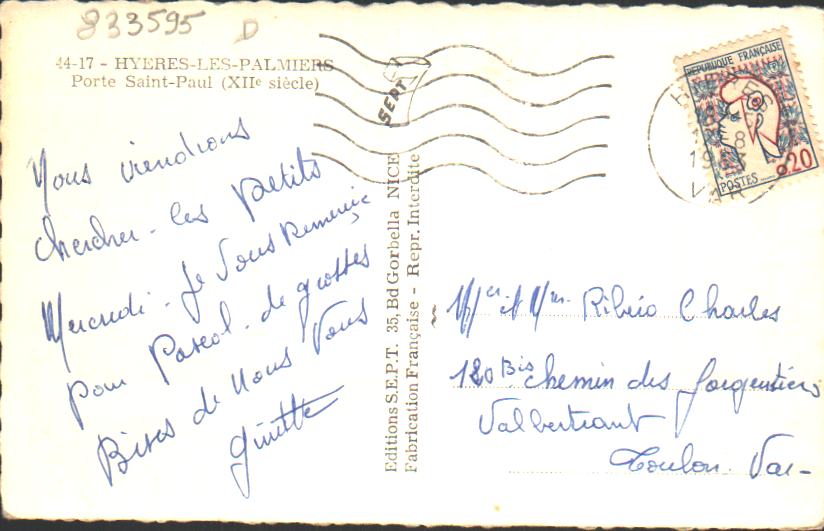 833595 D
44-17 - HYERES-LES-PALMIERS
Porte Saint-Paul (XIIe siècle)
Nous viendrons
chercher - les petits
Mercredi - Je vous Remercie
pour Pascal - de grosses
Bises de Nous Vous
Ginette
SEPT
Editions S.E.P.T. 35, Bd Gorbella NICE
Fabrication Française - Repr. Interdite
REPUBLIQUE FRANÇAISE
0,20
POSTES
HYERES
18
19
VAR
Mr et Mme Ribéio Charles
120 Bis chemin des
Valbertrant
Toulon. Var-